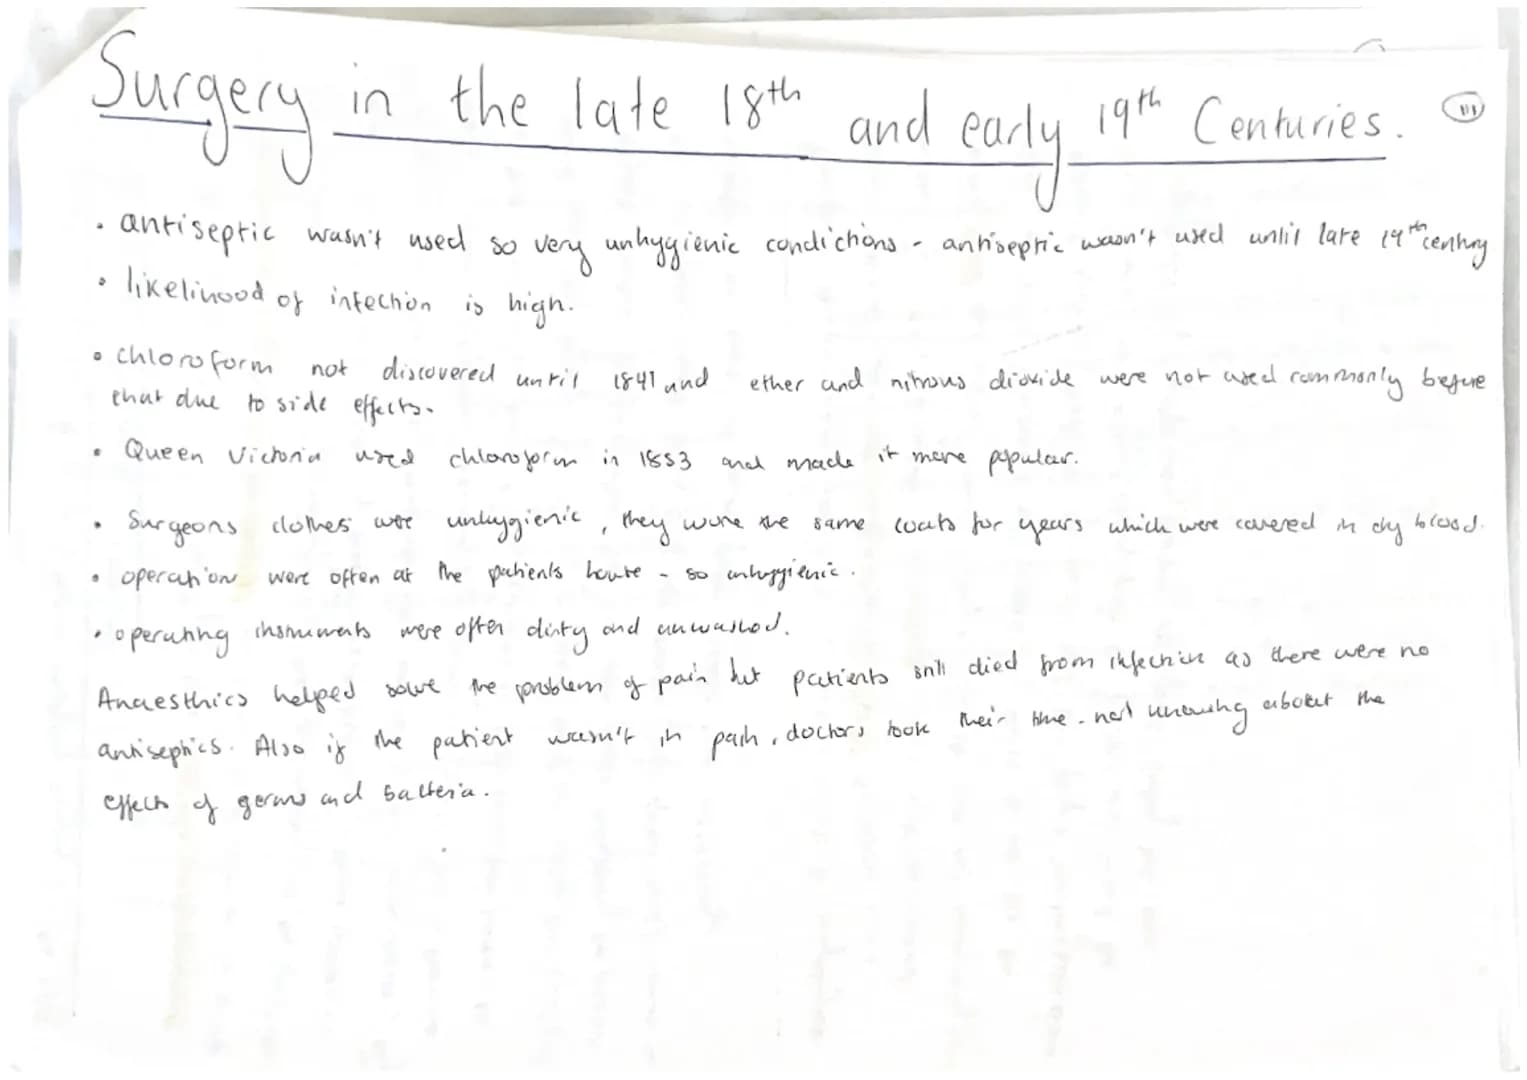 Surgery in the late 18th and early 19th Centuries.
• antiseptic wasn't used so very unhygienic conditions - antiseptic wasn't used until late 19th century
• likelihood of infection is high.
• chloroform not discovered until 1847 and ether and nitrous dioxide were not used commonly before
that due to side effects.
• Queen Victoria used chloroform in 1853 and made it more popular.
• Surgeons clothes were unhygienic, they wore the same coats for years which were covered in dry blood.
• operations were often at the patients house - so unhygienic.
• operating instruments were often dirty and unwashed.
Anaesthics helped solve the problem of pain but patients still died from infection as there were no
antiseptics. Also if the patient wasn't in pain, doctors took their time - not knowing about the
effects of germs and bacteria.